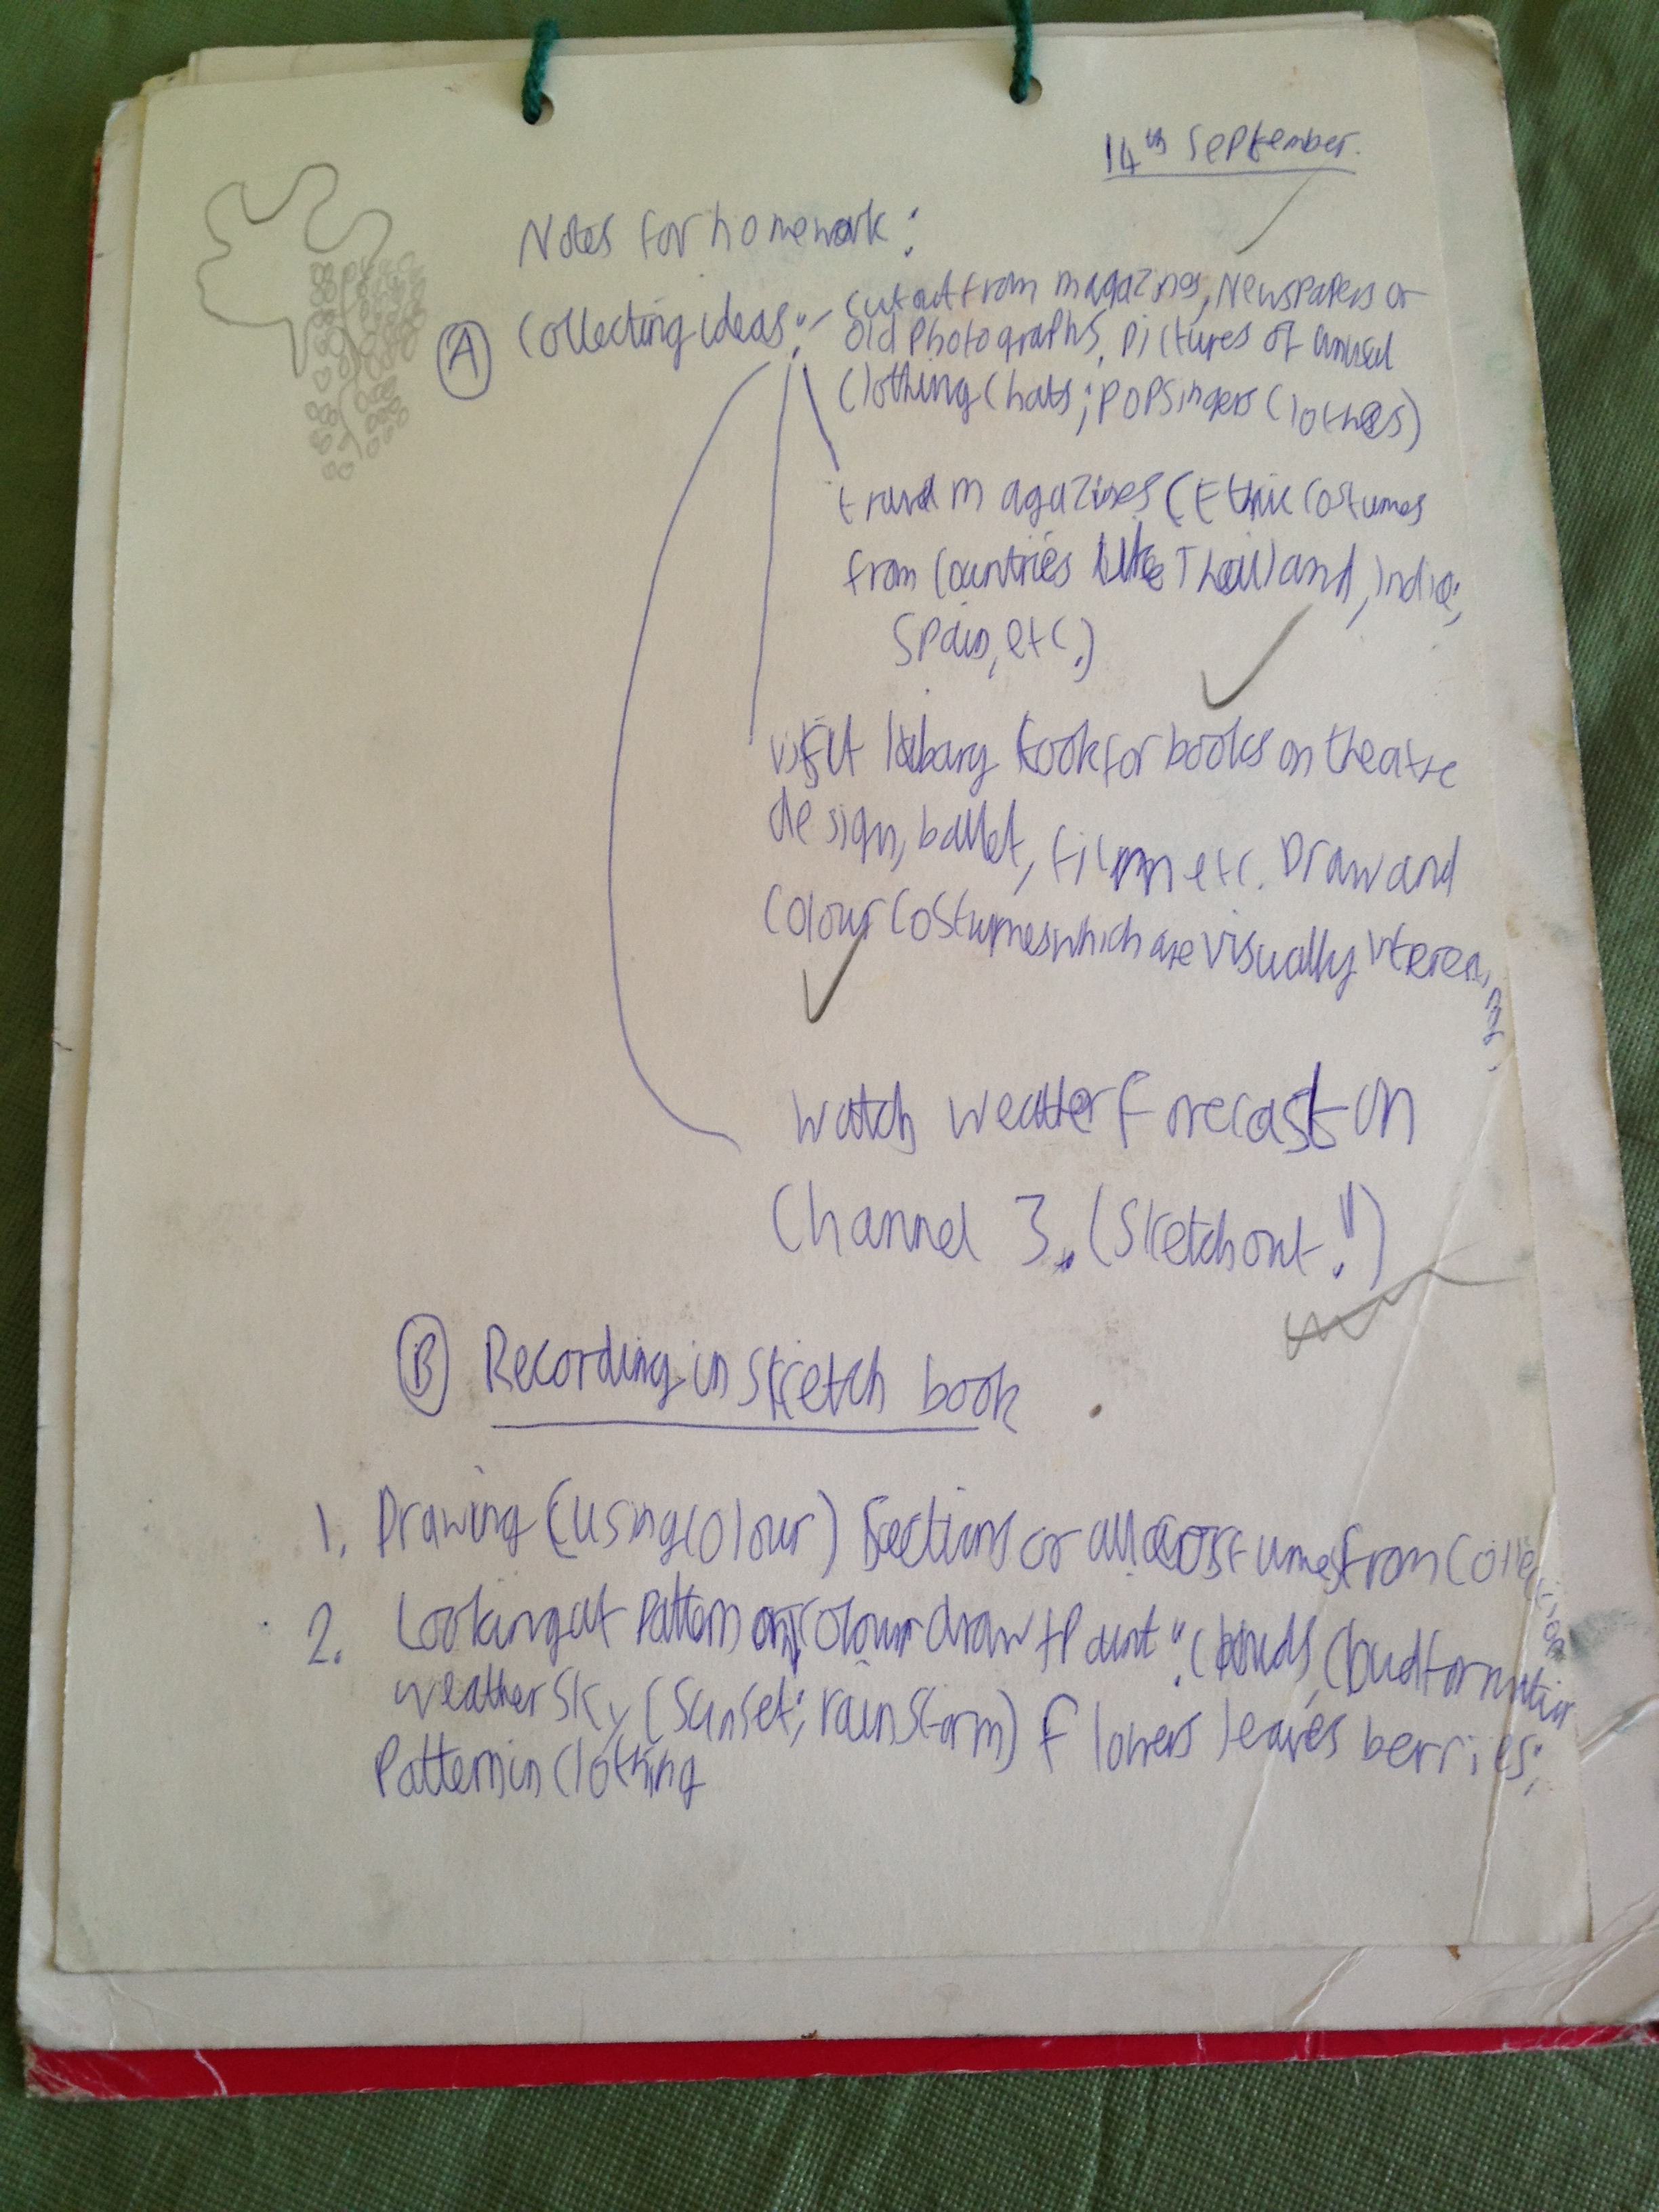 14th September.
Notes for homework:
A Collecting ideas:- cut out from magazines, Newspapers or
old Photographs, Pictures of unusual
clothing (hats; POPSingers clothes)
travel magazines (Ethnic costumes
from countries like Thailand, India,
Spain, etc.)
visit library look for books on theatre
design, ballet, film etc. Draw and
colour costumes which are visually
watch weather forecast on
Channel 3. (Sketch out!!)
B Recording in sketch book
1. Drawing (using colour) sections or all costumes from collection
2. Looking at Pattern colour draw + Paint: clouds, cloud formation
weather sky (sunset; rain storm) flowers leaves berries;
Pattern in clothing